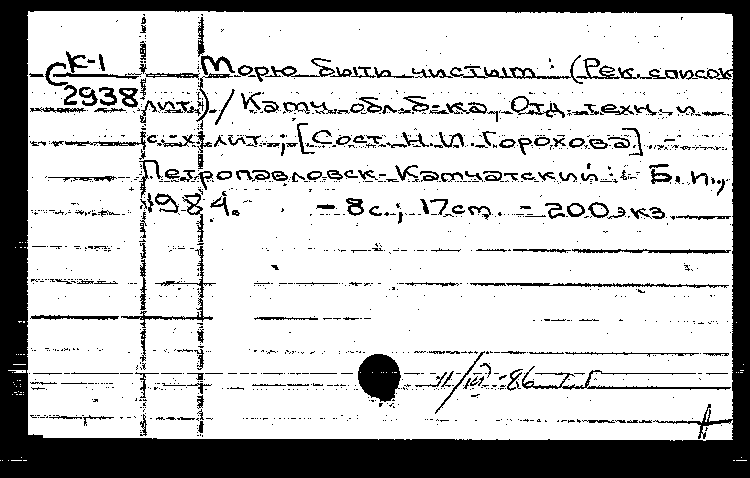 К-1 Морю быть чистым : (Рек. список
С 2938 лит.) / Камч. обл. б-ка, Отд. техн. и
с.-х. лит. ; [Сост. Н.И. Горохова]. -
Петропавловск-Камчатский : Б. и.,
1984. - 8 с.; 17 см. - 200 экз.
11/III-86